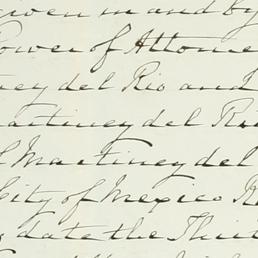 given in and by
Power of Attorne
ney del Rio and
artiney del R
l Martiney del
City of Mexico R
date the Thi